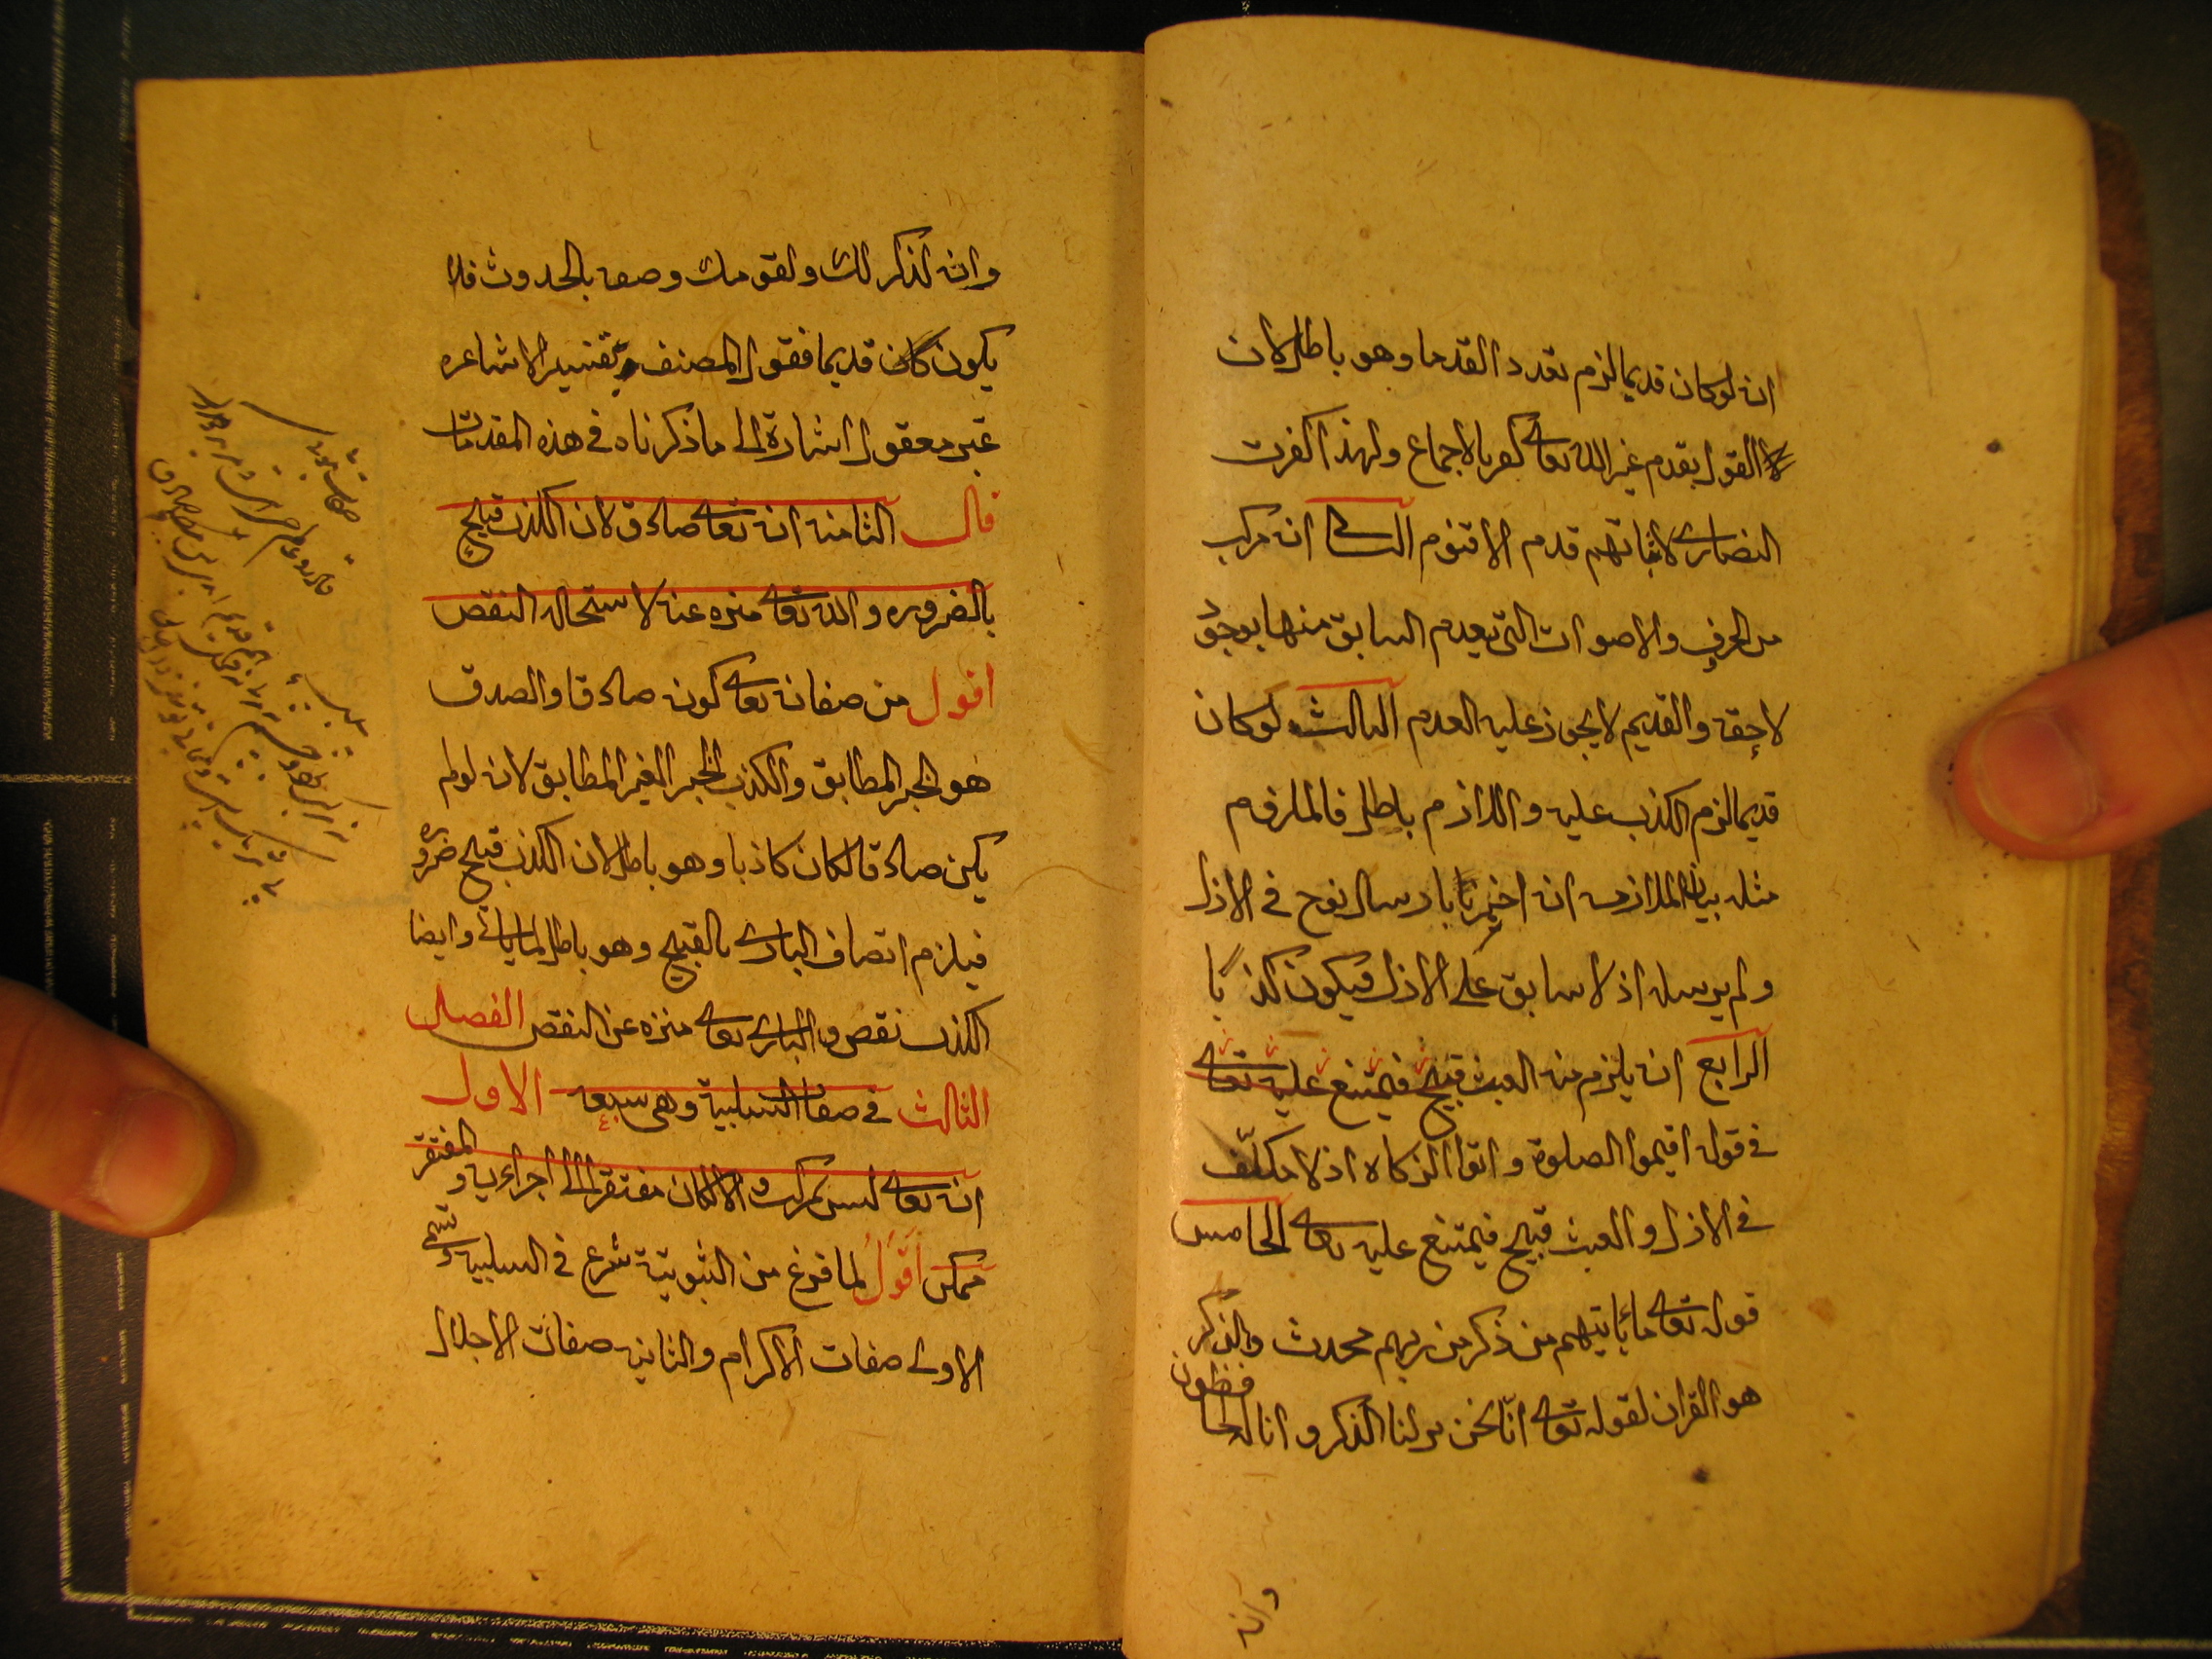 انه لوكان قديما لزم تعدد القدما وهو باطل لان
القول بقدم غير الله تعالى كفر بالاجماع ولهذا كفرت
النصارى لاثباتهم قدم الاقنوم الثانى انه مركب
من الحرف والاصوات التى يعدم السابق منها بوجود
لاحقه والقديم لا يجوز عليه العدم الثالث لوكان
قديما لزم الكذب عليه واللازم باطل فالملزوم
مثله بيان الملازمه انه اخبرنا بارسال نوح فى الازل
ولم يرسله اذ لا سابق على الازل فيكون كذبا
الرابع انه يلزم منه العبث قبيح فيمتنع عليه تعالى
فى قوله اقيموا الصلوة واتوا الزكاه اذ لا مكلّف
فى الازل والعبث قبيح فيمتنع عليه تعالى الخامس
قوله تعالى ما ياتيهم من ذكر من ربهم محدث والذكر
هو القران لقوله تعالى انّا نحن نزلنا الذكر و انا له لحافظون
وانه
وانه لذكر لك ولقومك وصفه بالحدوث فلا
يكون كان قديما فقول المصنف وتفسير الاشاعره
غير معقول اشارة الى ما ذكرناه فى هذه المقدمات
قال الثامنه انه تعالى صادق لان الكذب قبيح
بالضروره والله تعالى منزه عنه لاستحاله النقص
اقول من صفاته تعالى كونه صادقا والصدق
هو الخبر المطابق والكذب الخبر الغير المطابق لانه لولم
يكن صادقا لكان كاذبا وهو باطل لان الكذب قبيح ضروره
فيلزم اتصاف البارى بالقبيح وهو باطل لما ياتى وايضا
الكذب نقص و البارى تعالى منزه عن النقص الفصل
الثالث فى صفات السلبية وهى سبعه الاول
انه تعالى ليس بمركب و الا لكان مفتقرا الى اجزاءيه والمفتقر
ممكن اَقَوُلُ لما فرغ من الثبوتية شرع فى السلبيه وتسمى
الاولى صفات الاكرام والثانيه صفات الاجلال